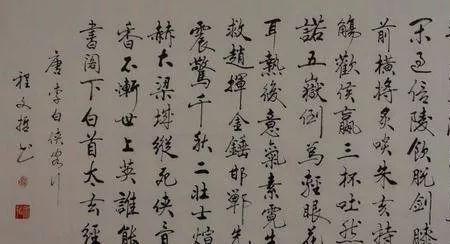 閑過信陵飲脱劍膝
前橫將炙啖朱亥持
觴歡侯嬴三杯吐然
諾五嶽倒為輕眼花
耳熱後意氣素霓生
救趙揮金錘邯鄲先
震驚千秋二壯士煊
赫大梁城縱死俠骨
香不慚世上英誰能
書閣下白首太玄經
唐李白俠客行
程文